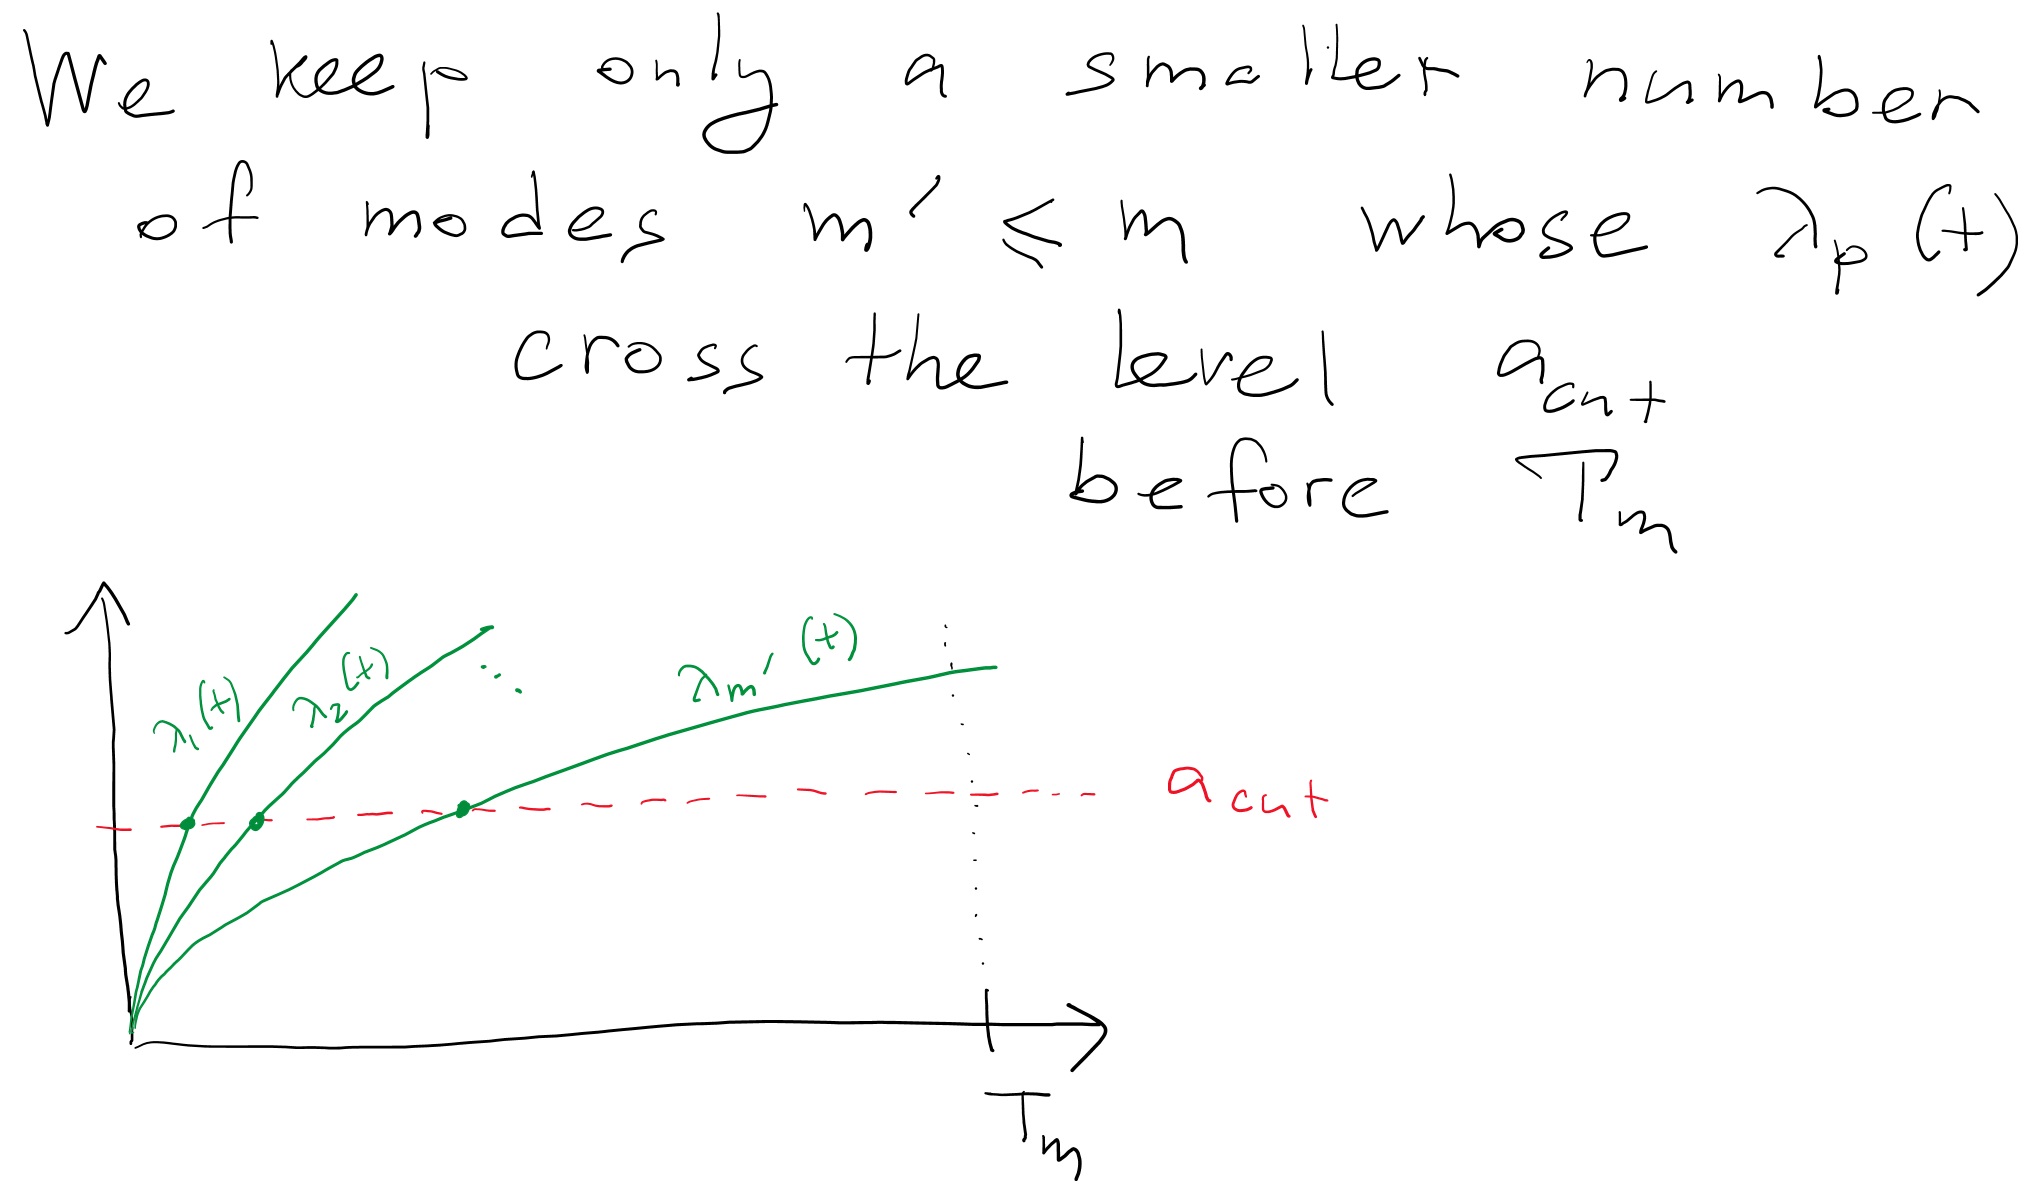 We keep only a smaller number
of modes m' ⩽ m whose λₚ(t)
cross the level a_cut
before Tₘ
λ₁(t)
λ₂(t)
λₘ'(t)
a_cut
Tₘ